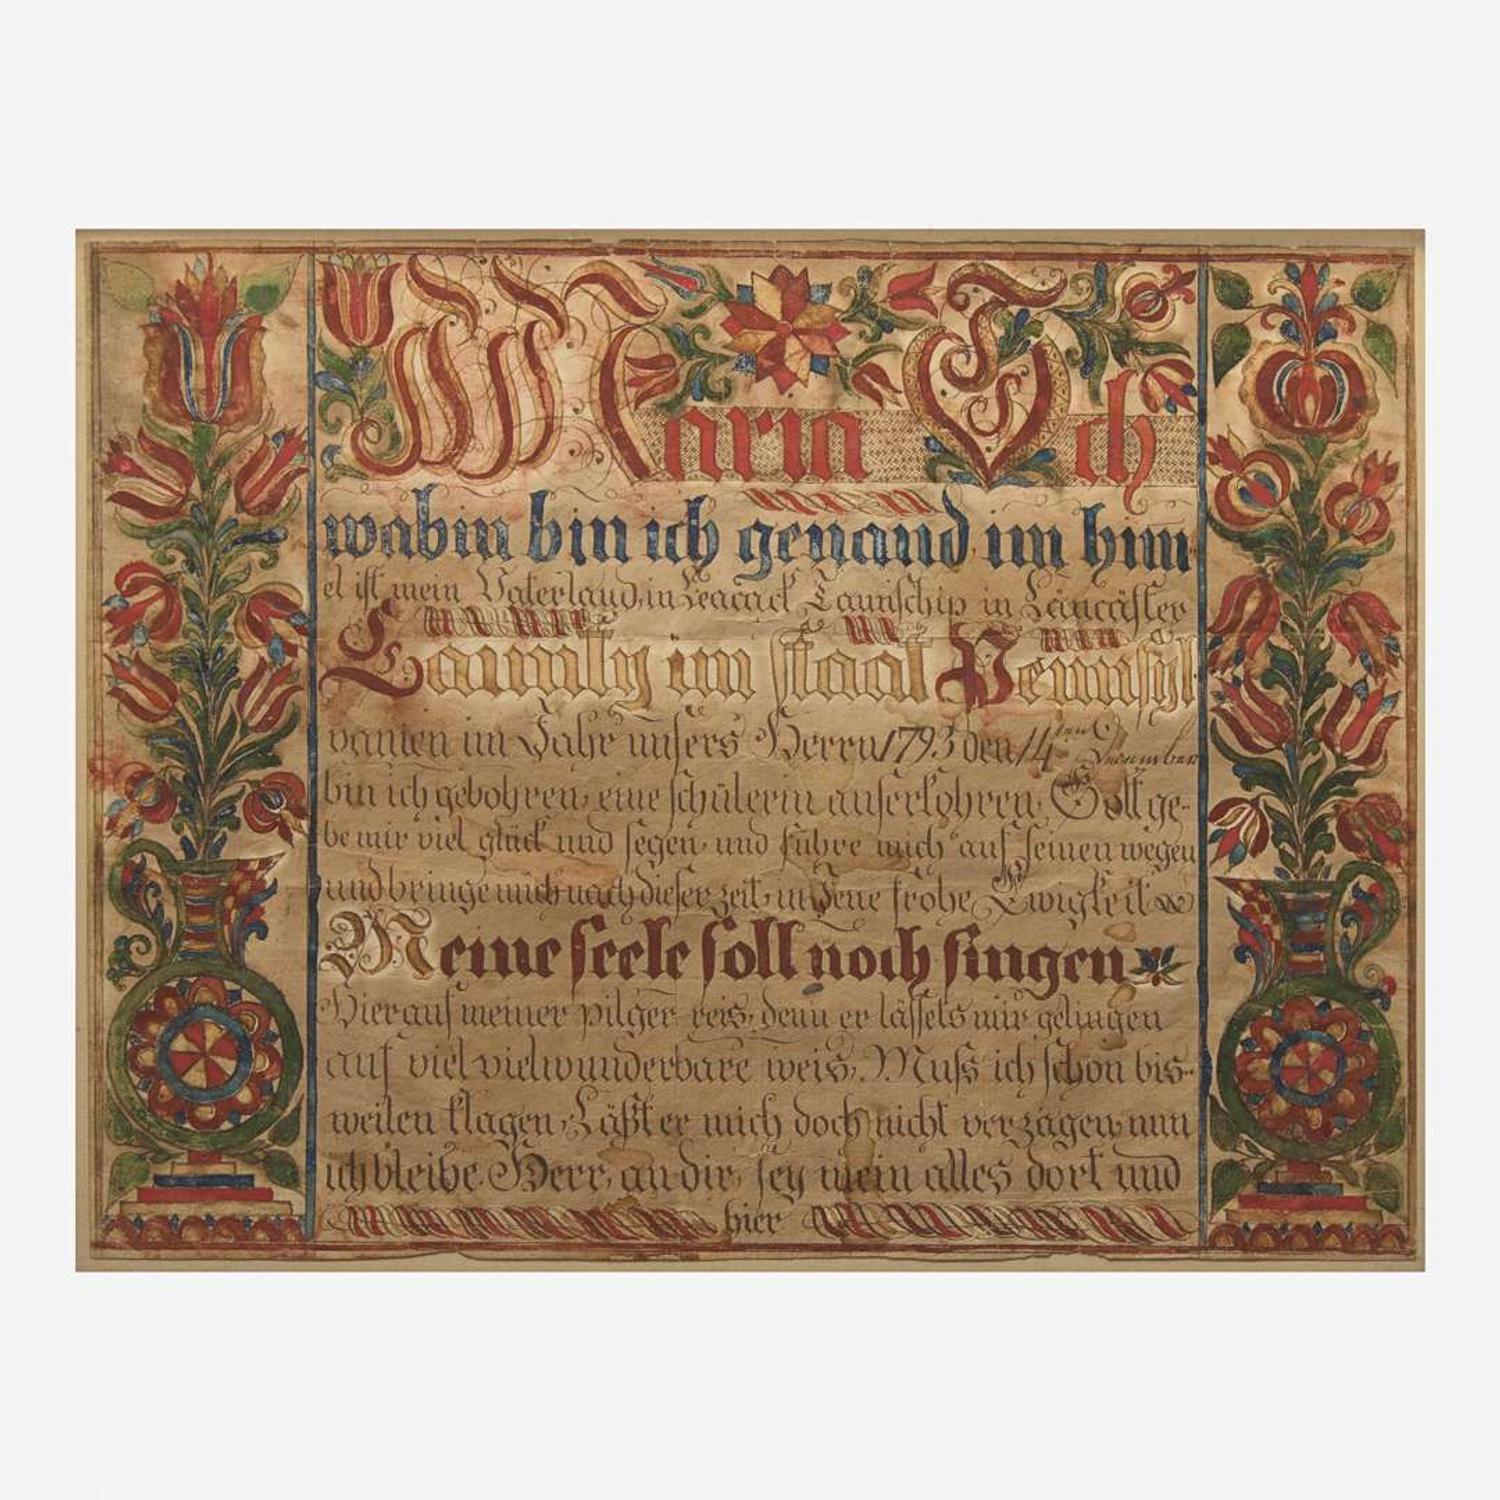 Maria Sch
wabin bin ich genand im him
el ist mein Vaterland, in Leacack Taunschip in Läncäster
Caunty im staat Pennsyl
vanien im Jahr unsers Herrn 1793 den 14
bin ich gebohren, eine schülerin auserkohren, Gott ge-
be mir viel glück und segen, und führe mich auf seinen wegen
und bringe mich nach dieser zeit, in Jene frohe Ewigkeit
Meine seele soll noch singen
Hier auf meiner pilger reis, denn er lässets mir gelingen
auf viel viel wunderbare weis, Muss ich schon bis-
weilen klagen, Läßt er mich doch nicht verzagen, nun
ich bleibe Herr, an dir, sey mein alles dort und
hier